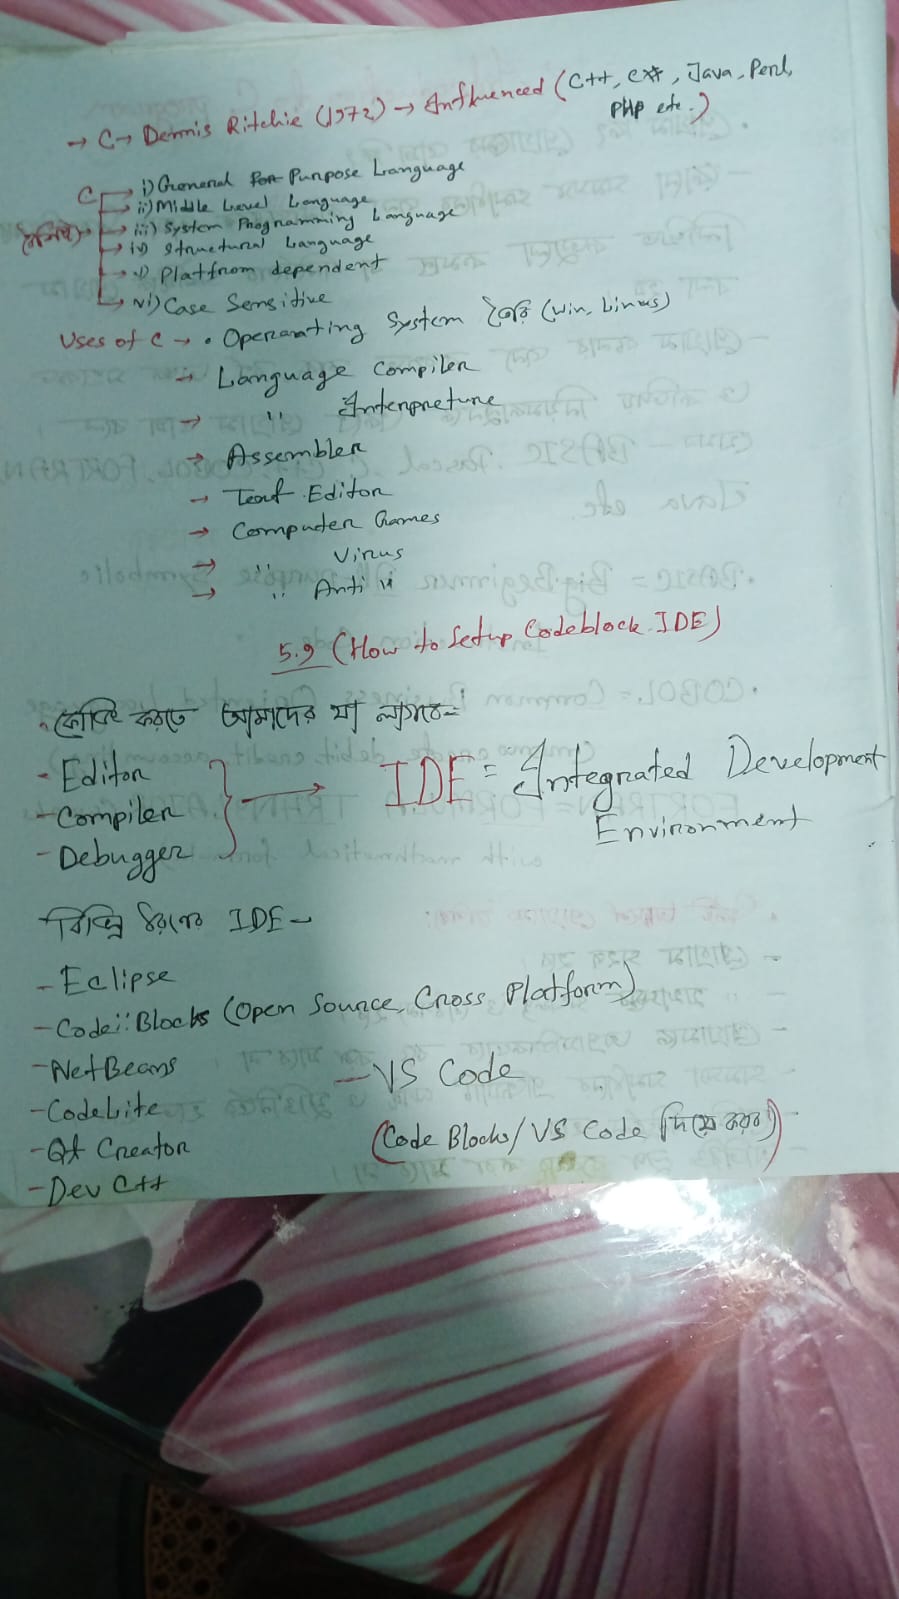 → C → Dennis Ritchie (1972) → Influenced (C++, C#, Java, Perl,
PHP etc.)
C i) General Purpose Language
ii) Middle Level Language
iii) System Programming Language
iv) Structural Language
v) Platfrom dependent
vi) Case Sensitive
Uses of C → • Operating System তৈরি (Win, Linux)
→ Language Compiler
→ " Interpreture
→ Assembler
→ Text Editor
→ Computer Games
→ " Virus
→ " Anti "
5.9 (How to Setup Codeblock IDE)
• কোডিং করতে আমাদের যা লাগবে-
- Editor
- Compiler
- Debugger
} → IDE = Integrated Development
Environment
বিভিন্ন ধরণের IDE -
- Eclipse
- Code::Blocks (Open Source, Cross Platform)
- NetBeans
- VS Code
- CodeLite
- Qt Creator
(Code Blocks/VS Code দিয়ে করব)
- Dev C++